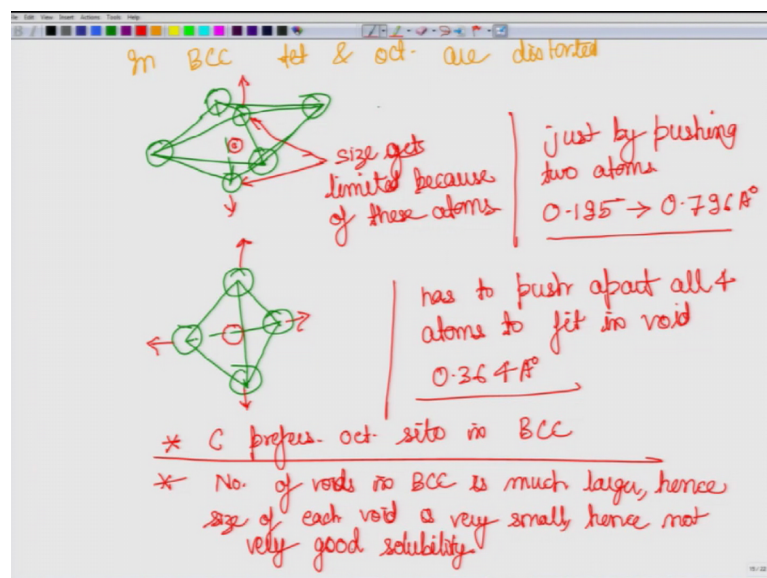 File Edit View Insert Actions Tools Help
In BCC tet & oct. are distorted
size gets
limited because
of these atoms.
just by pushing
two atoms
0.195 → 0.796 A°
has to push apart all 4
atoms to fit in void
0.364 A°
* C prefers oct. site in BCC
* No. of voids in BCC is much larger, hence
size of each void is very small, hence not
very good solubility.